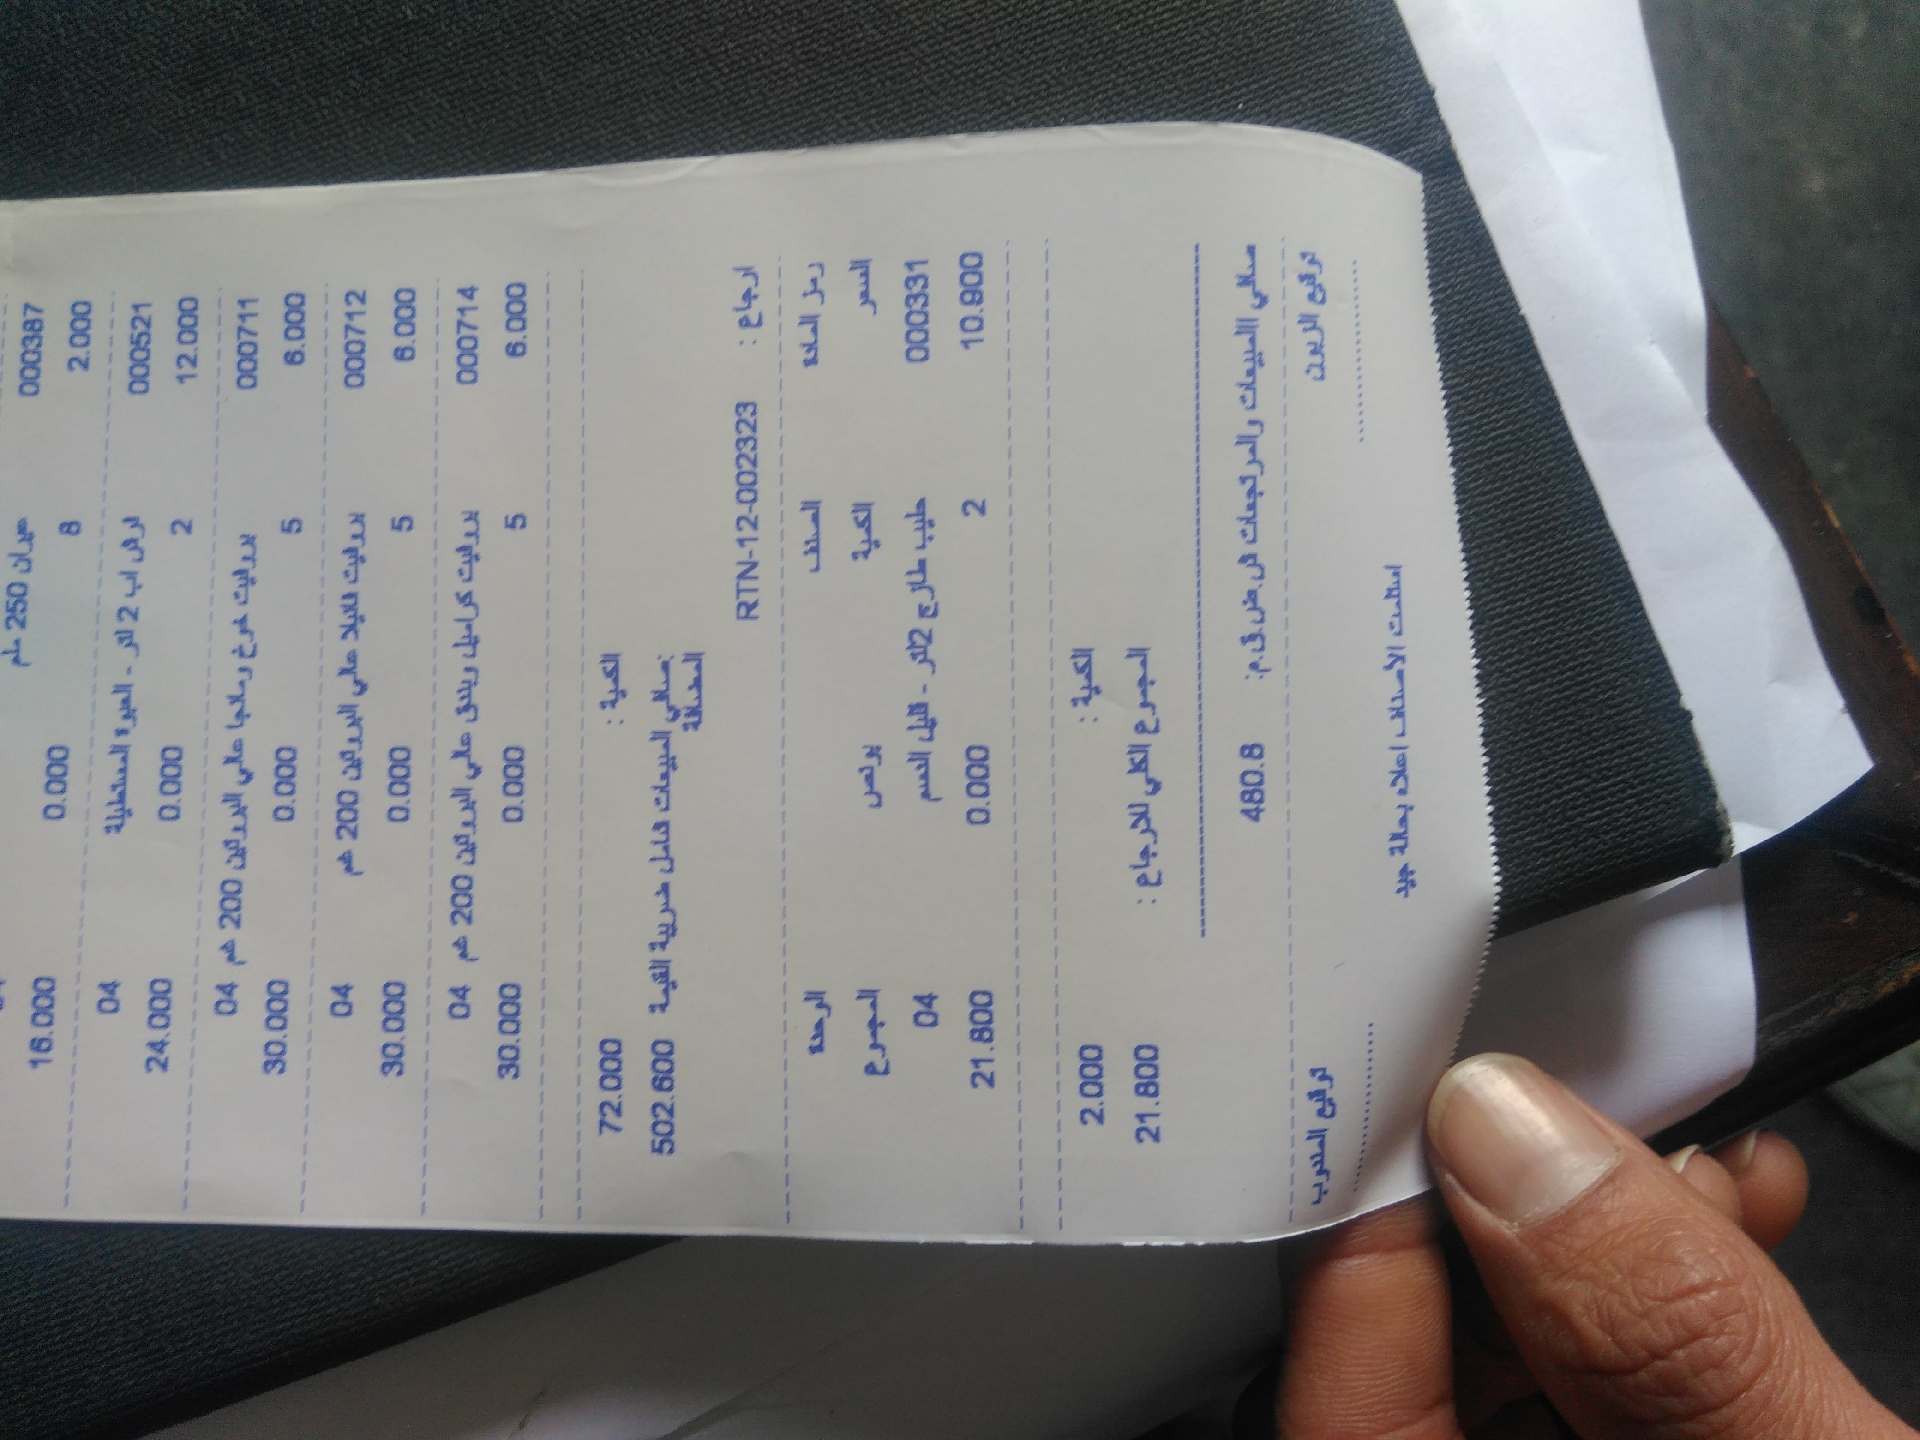 000387 ميدان 250 ملم
2.000 8 0.000 16.000
000521 لرش اب 2 لتر - العبوة المستطيلة 04
12.000 2 0.000 24.000
000711 بروفيت خوخ ومانجا عالي البروتين 200 غم 04
6.000 5 0.000 30.000
000712 بروفيت فانيلا عالي البروتين 200 غم 04
6.000 5 0.000 30.000
000714 بروفيت كراميل وبندق عالي البروتين 200 غم 04
6.000 5 0.000 30.000
الكمية : 72.000
صافي المبيعات شامل ضريبة القيمة 502.600
المضافة
ارجاع : RTN-12-002323
رمز المادة الصنف الوحدة
السعر الكمية بونص المجموع
000331 حليب طازج 2لتر - قليل الدسم 04
10.900 2 0.000 21.800
الكمية : 2.000
المجموع الكلي للارجاع : 21.800
صافي المبيعات والمرتجعات ش.ض.ق.م: 480.8
توقيع الزبون توقيع المندوب
استلمت الأصناف اعلاه بحالة جيدة